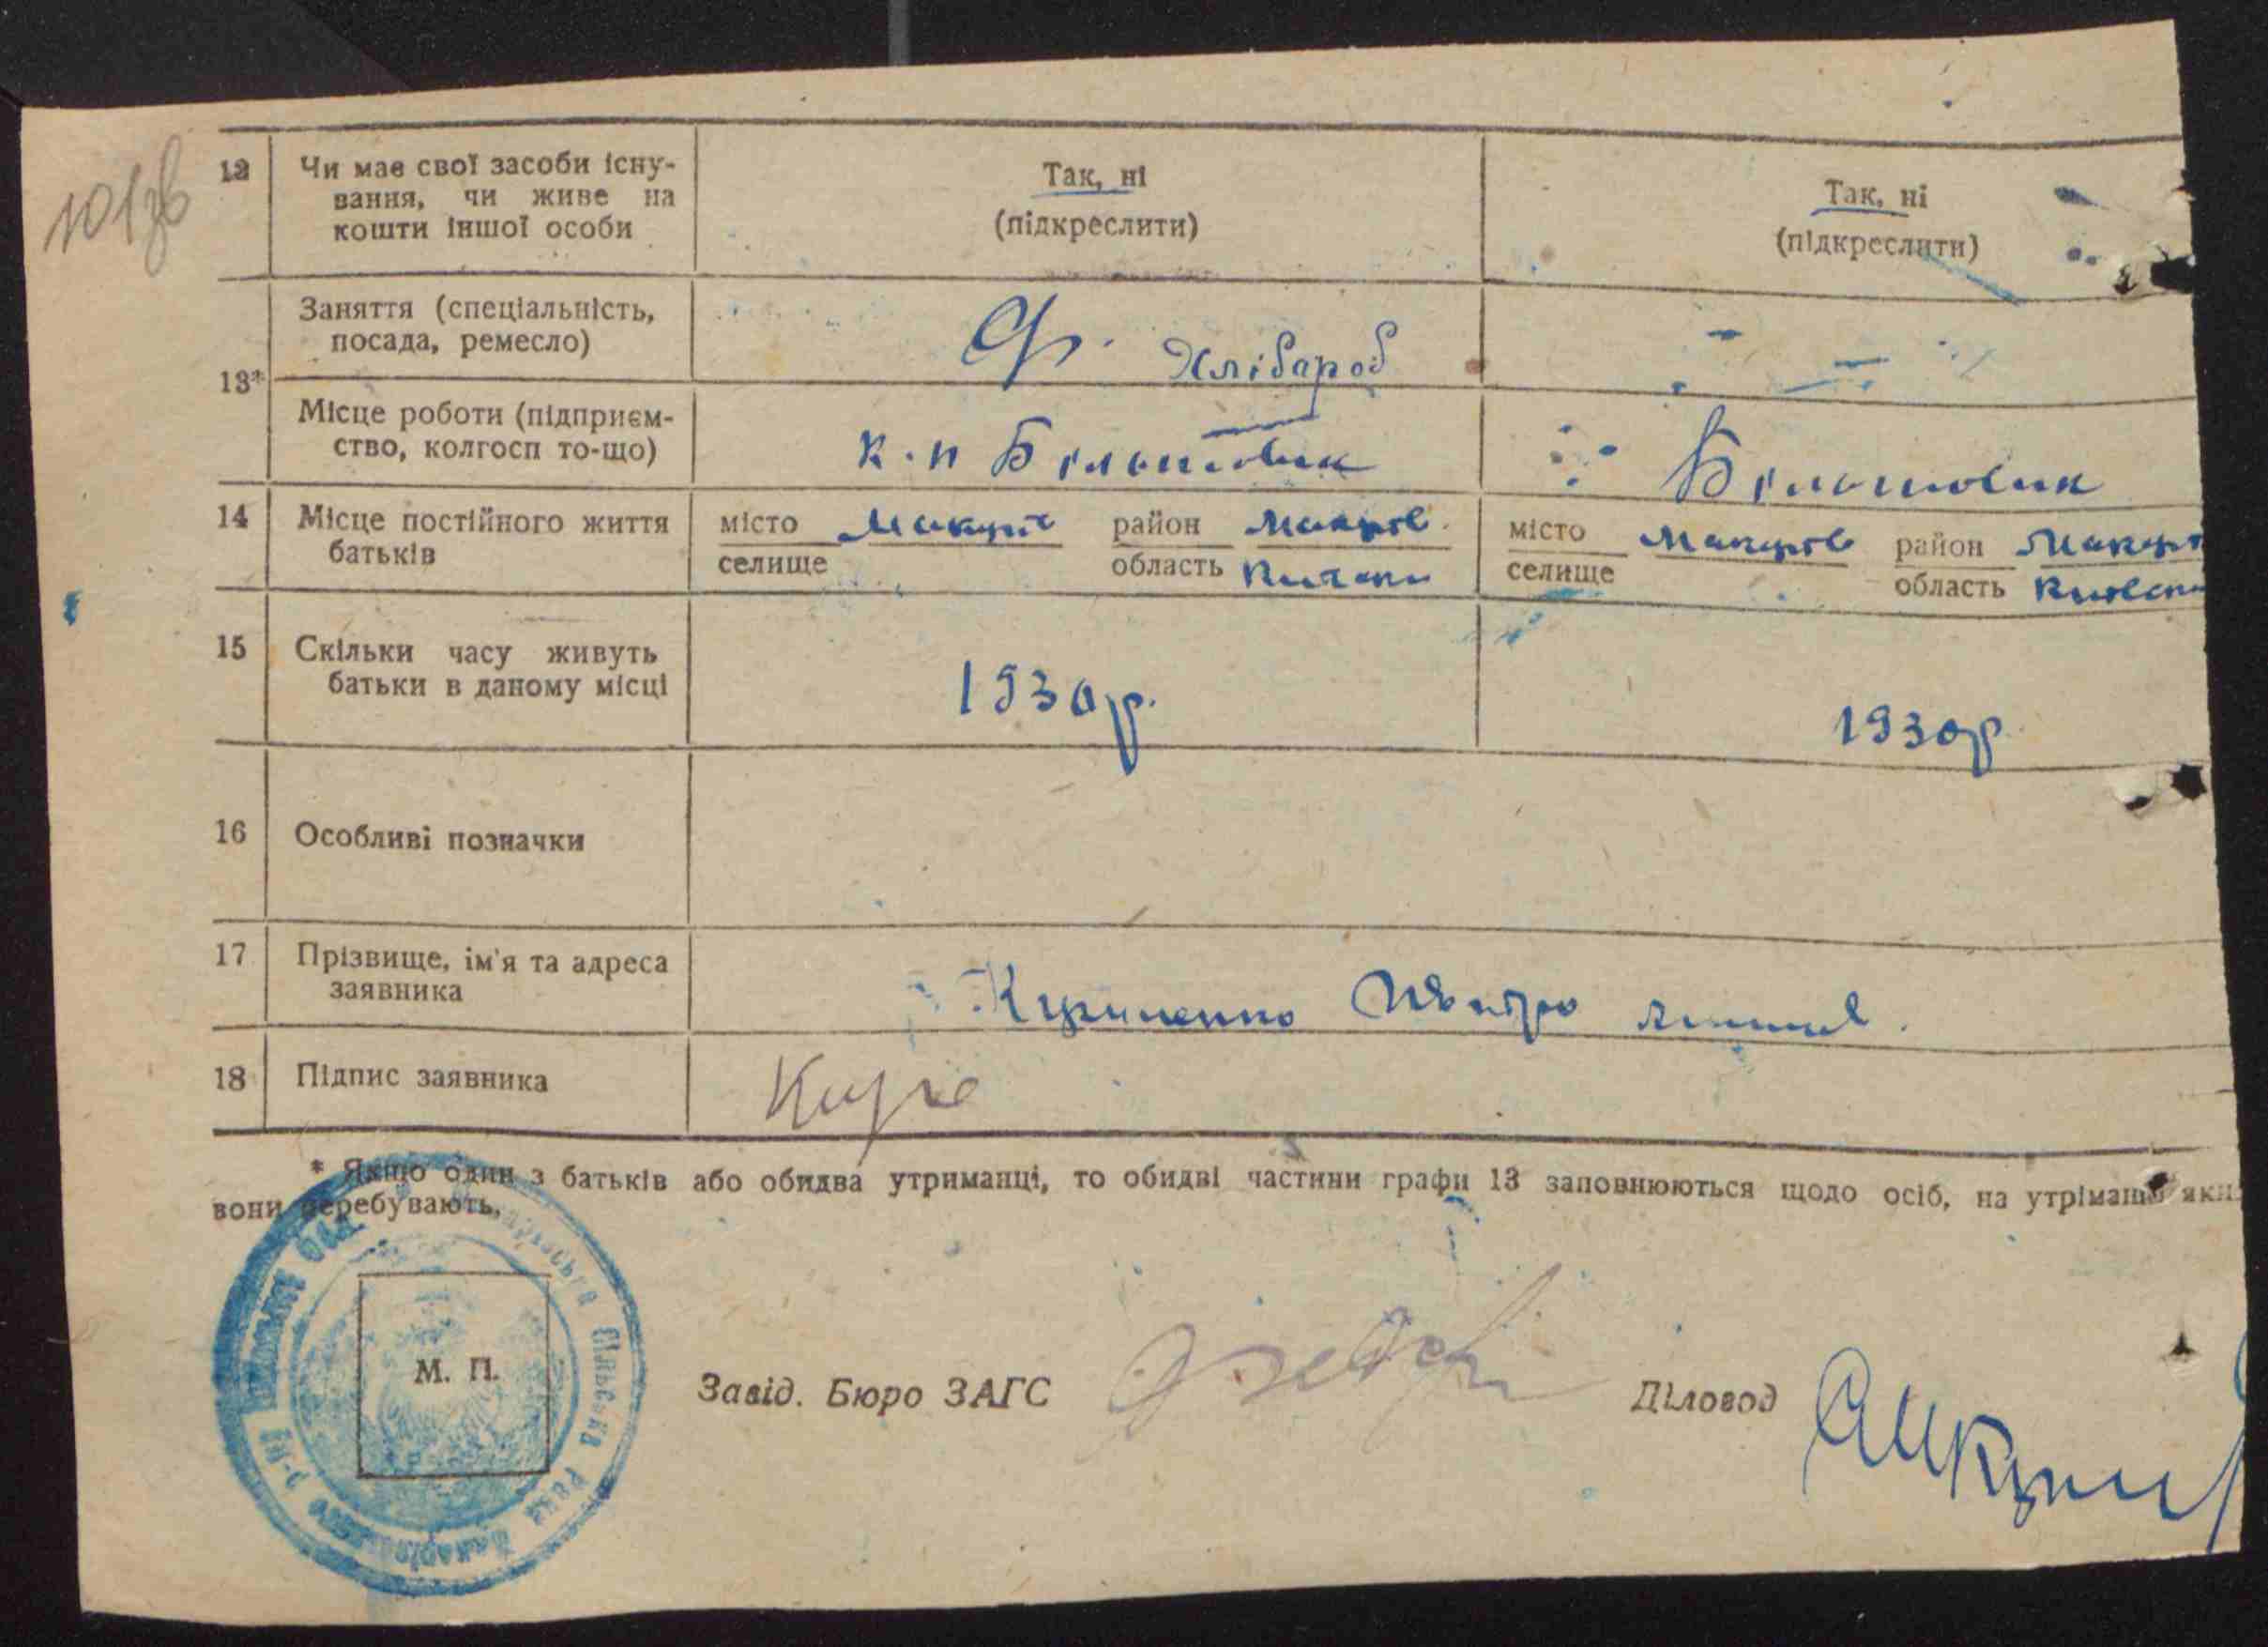 101зв
12 Чи має свої засоби існу-
вання, чи живе на
кошти іншої особи
Так, ні
(підкреслити)
Так, ні
(підкреслити)
13*
Заняття (спеціальність,
посада, ремесло)
Хлібароб
Місце роботи (підприєм-
ство, колгосп то-що)
к.п Більшовик
Більшовик
14 Місце постійного життя
батьків
місто Макарів район Макарів
селище область
місто Макарів район Макарів
селище область Київськ
15 Скільки часу живуть
батьки в даному місці
1930р.
1930р
16 Особливі позначки
17 Прізвище, ім'я та адреса
заявника
18 Підпис заявника
* Якщо один з батьків або обидва утриманці, то обидві частини графи 13 заповнюються щодо осіб, на утріманні яки
вони перебувають.
Сільська Рада
М. П.
Завід. Бюро ЗАГС
Діловод